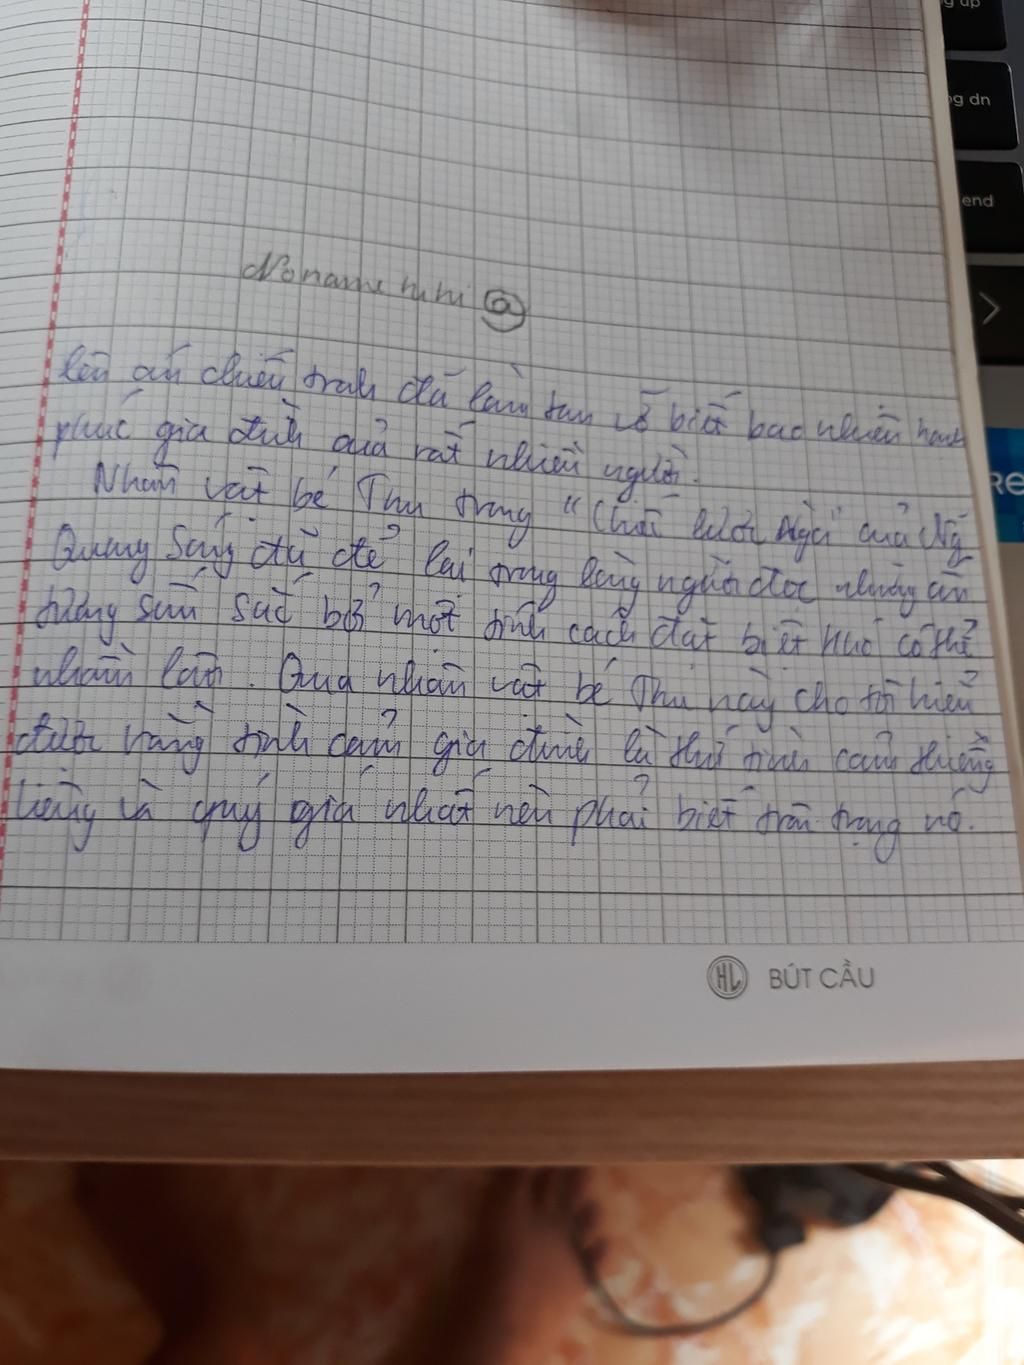 g up
pg dn
end
Noname hihi @
Re
lên án chiến tranh đã làm tan vỡ biết bao nhiêu hạnh
phúc gia đình của rất nhiều người.
Nhân vật bé Thu trong "Chiếc lược Ngà" của Ng
Quang Sáng đã để lại trong lòng người đọc những ấn
tượng sâu sắc bởi một tính cách đặt biệt khó có thể
nhầm lẫn. Qua nhân vật bé Thu này cho tôi hiểu
được rằng tình cảm gia đình là thứ tình cảm thiêng
liêng và quý giá nhất nên phải biết trân trọng nó.
HL BÚT CẦU